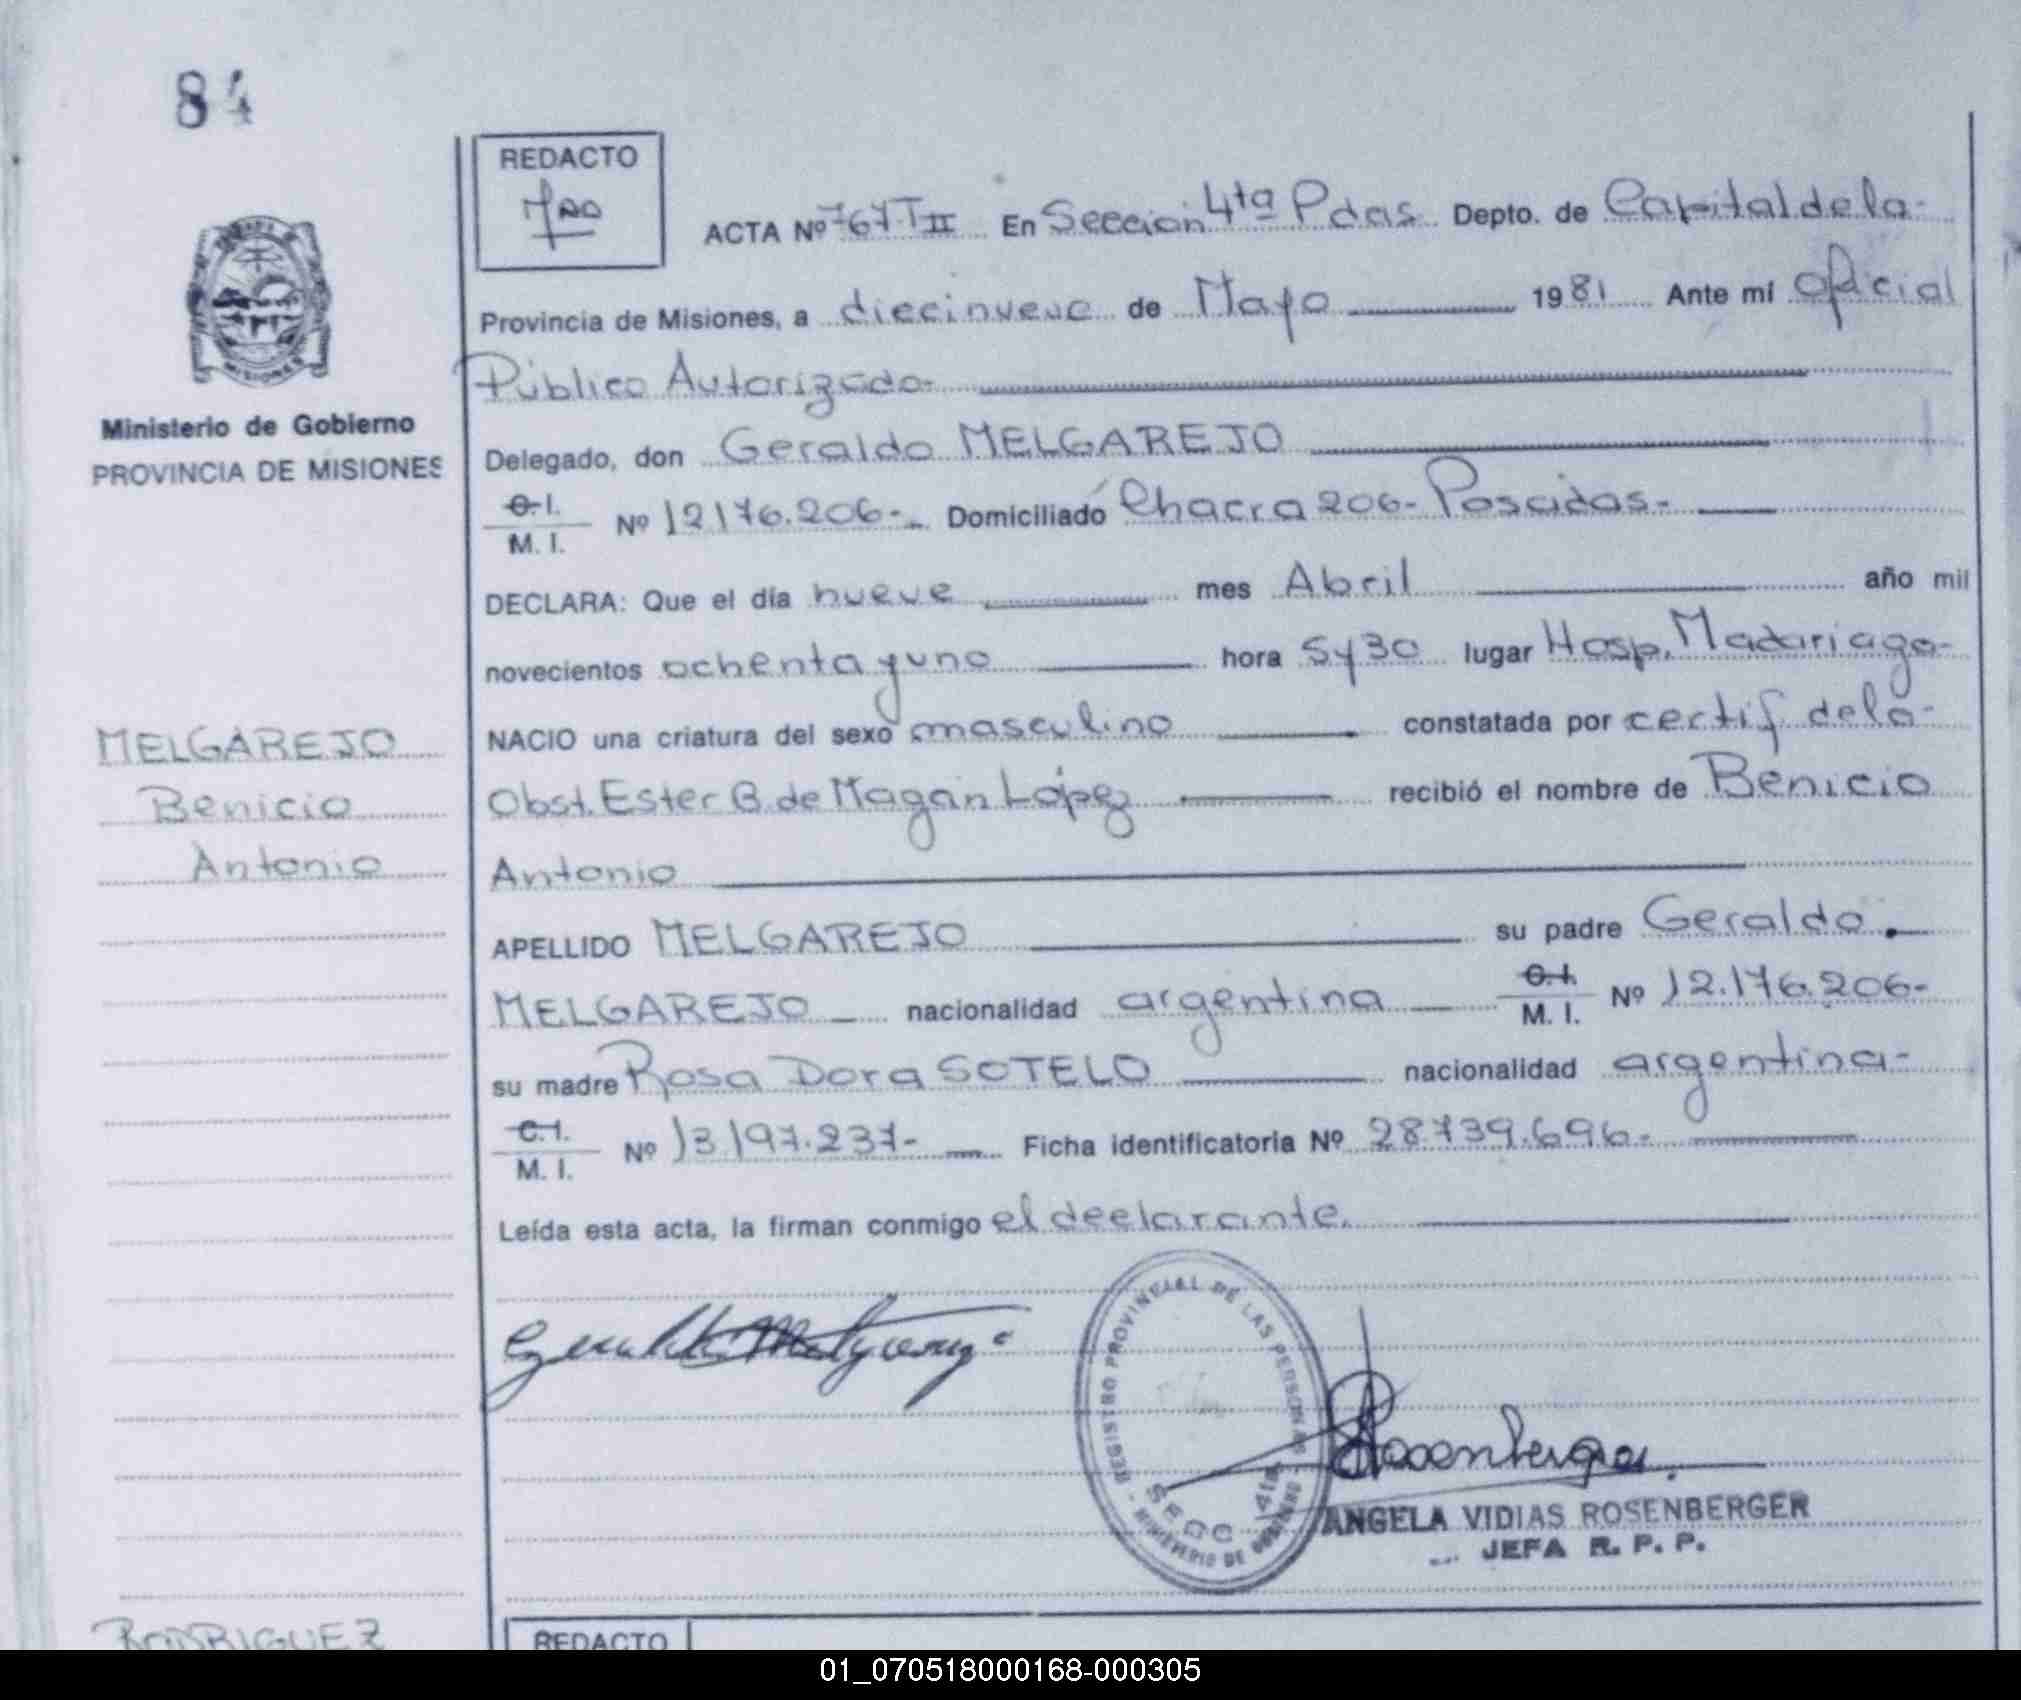 84
REDACTO
ACTA Nº 767 T II En Seccion 4ta Pdas. Depto. de Capital de la-
Provincia de Misiones, a diecinueve de Mayo 1981 Ante mí Oficial
Público Autorizado-
Delegado, don Geraldo MELGAREJO
C.I. M. I. Nº 12176.206- Domiciliado Chacra 206- Posadas-
DECLARA: Que el día nueve mes Abril año mil
novecientos ochenta y uno hora 5y30 lugar Hosp. Madariaga-
NACIO una criatura del sexo masculino constatada por certif de la-
Obst. Ester B. de Magan López recibió el nombre de Benicio
Antonio
APELLIDO MELGAREJO su padre Geraldo
MELGAREJO nacionalidad argentina C.I. M. I. Nº 12.176.206-
su madre Rosa Dora SOTELO nacionalidad argentina-
C.I. M. I. Nº 13197.237- Ficha identificatoria Nº 28739.696-
Leída esta acta, la firman conmigo el declarante.
MISIONES
Ministerio de Gobierno
PROVINCIA DE MISIONES
MELGAREJO
Benicio
Antonio
REGISTRO PROVINCIAL DE LAS PERSONAS - MINISTERIO DE GOBIERNO -
SECC. 4ta
Rosenberger
ANGELA VIDIAS ROSENBERGER
JEFA R. P. P.
RODRIGUEZ
REDACTO
01_070518000168-000305